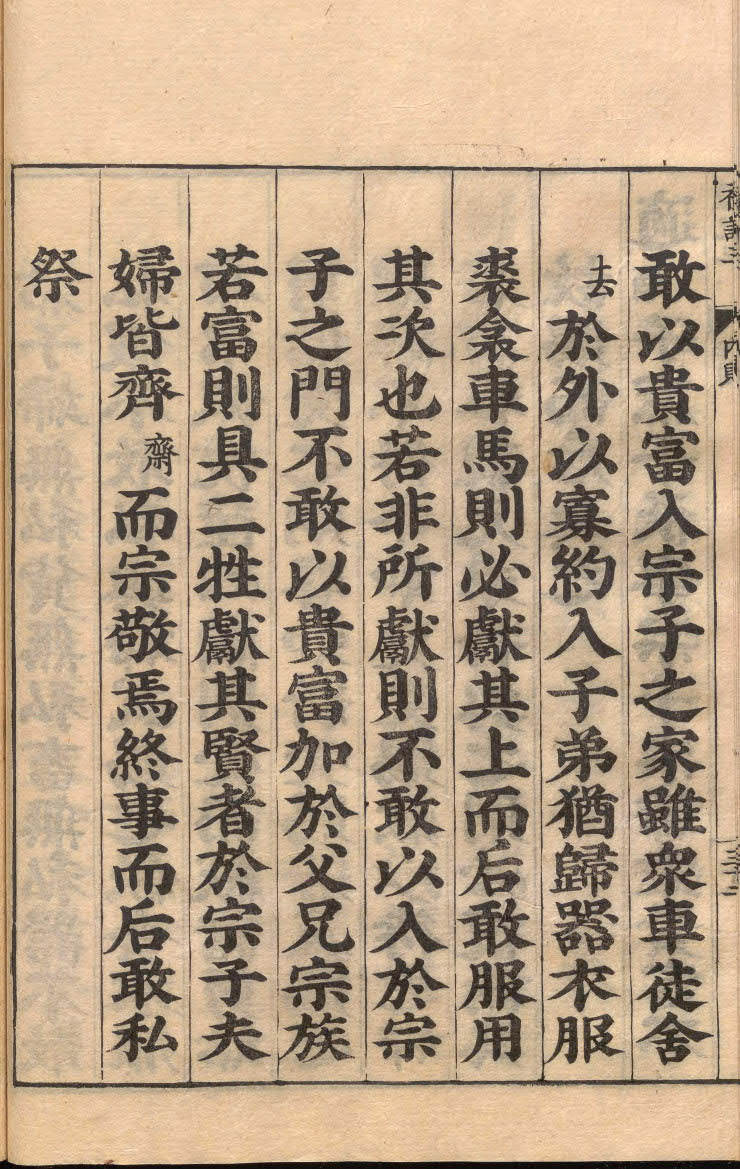 敢以貴富入宗子之家雖衆車徒舍
去於外以寡約入子弟猶歸器衣服
裘衾車馬則必獻其上而后敢服用
其次也若非所獻則不敢以入於宗
子之門不敢以貴富加於父兄宗族
若富則具二牲獻其賢者於宗子夫
婦皆齊齋而宗敬焉終事而后敢私
祭